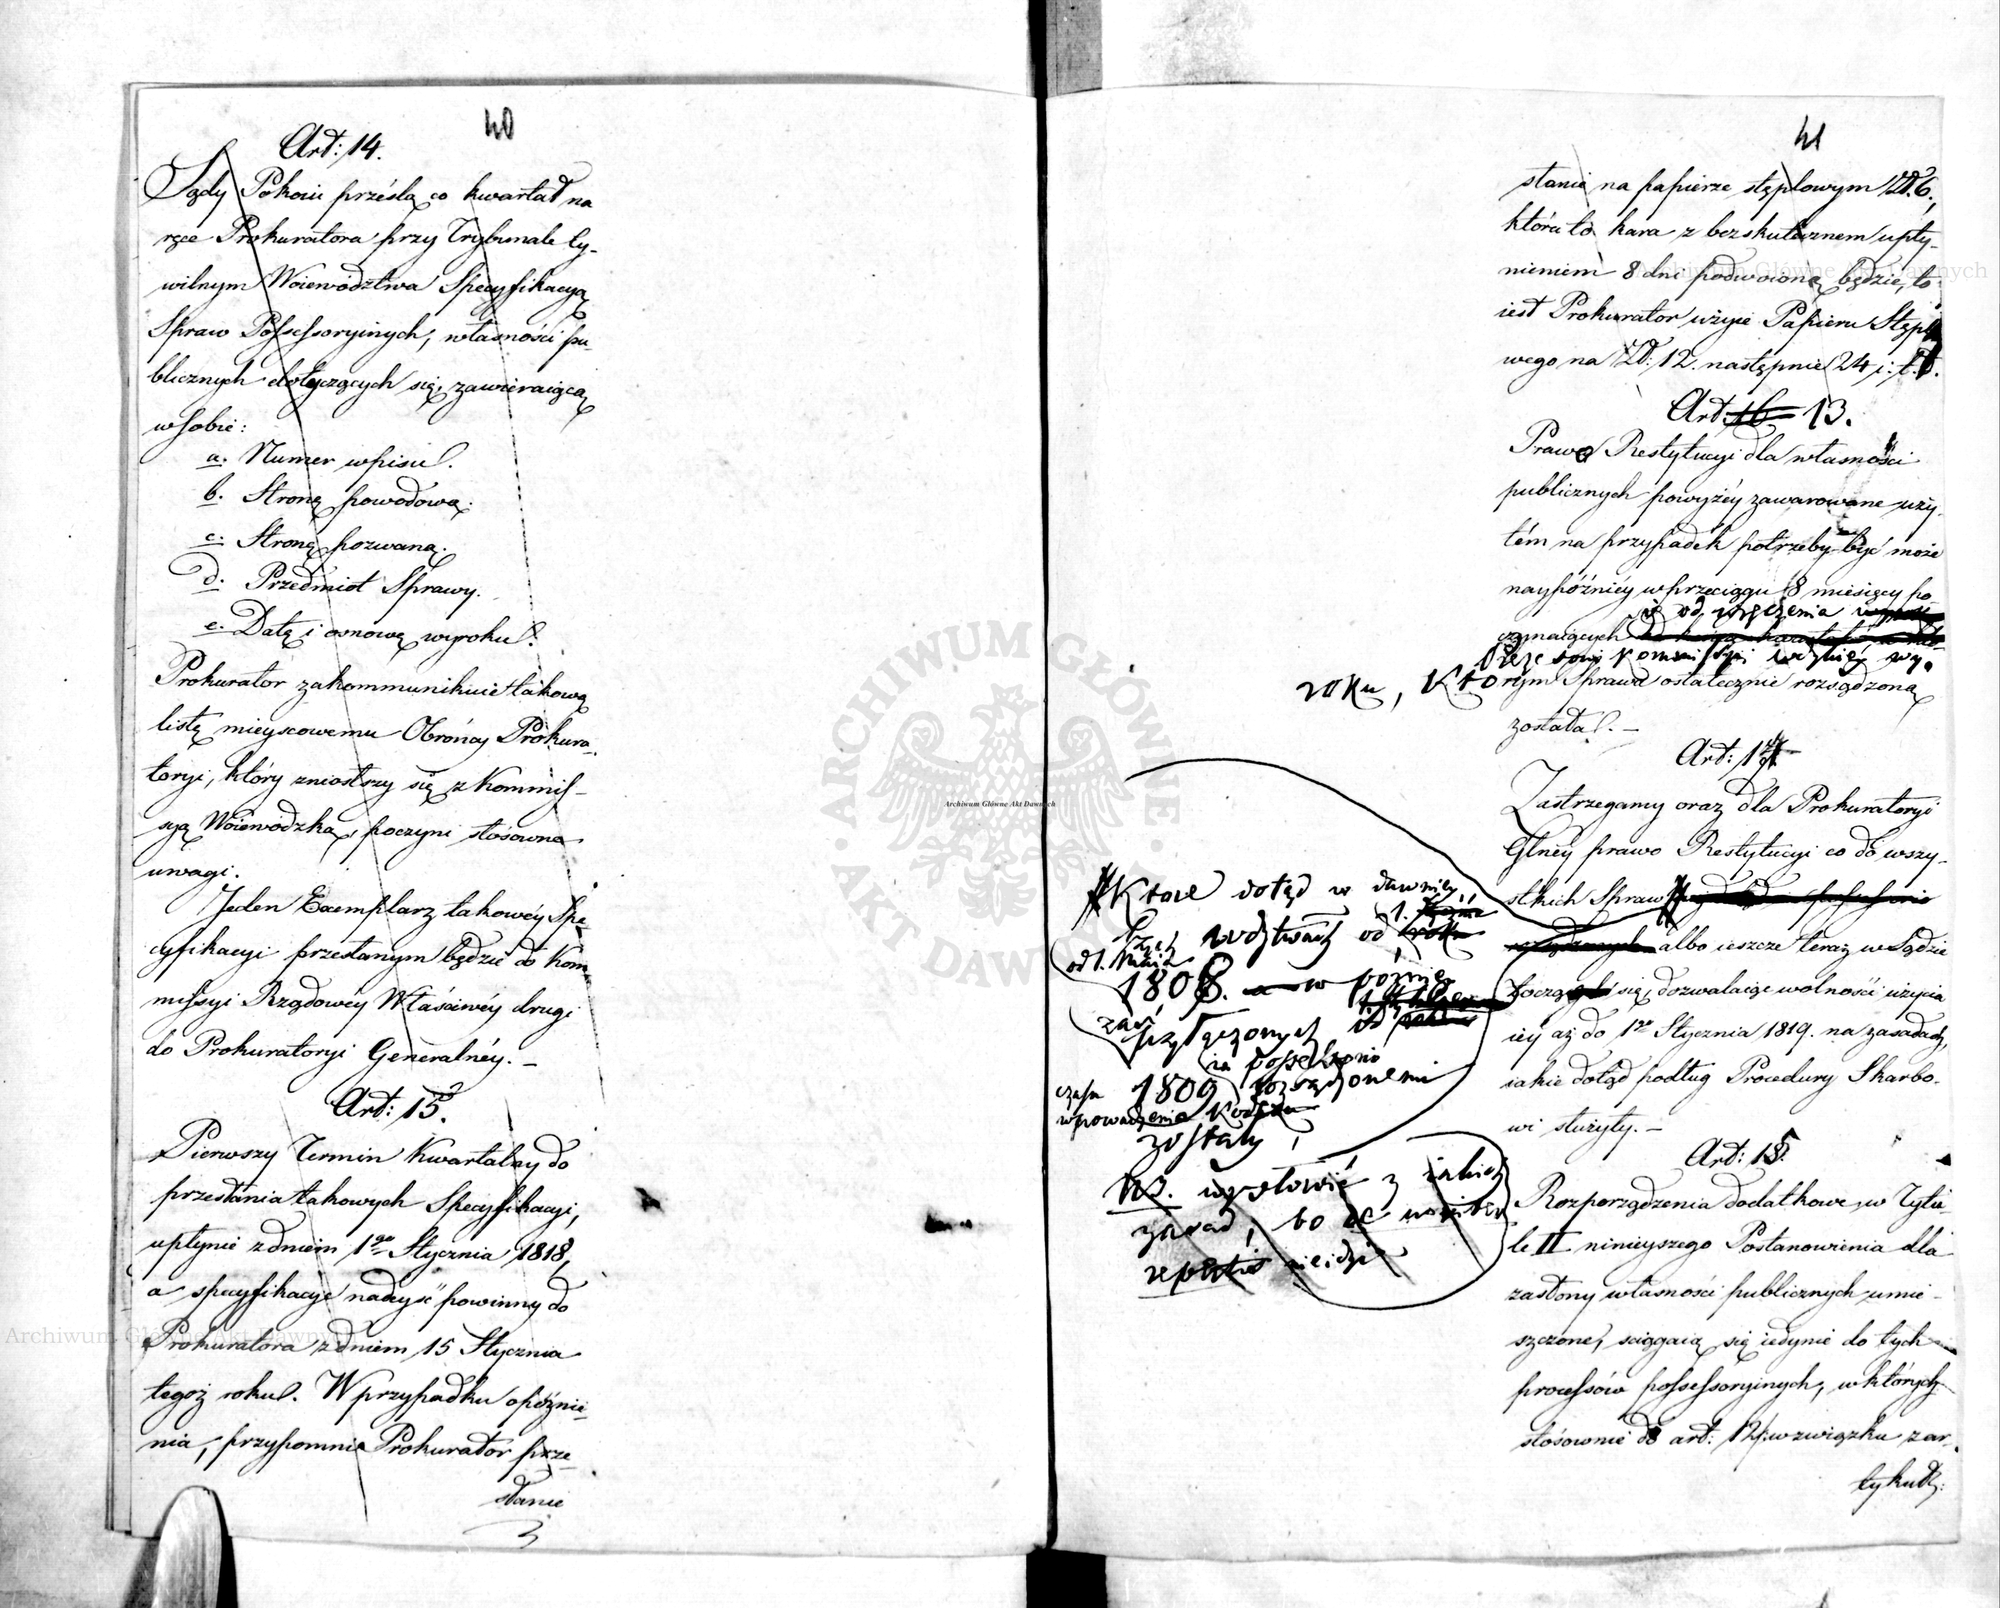 40
Art: 14.
Sądy Pokoiu prześlą co kwartał na
ręce Prokuratora przy Trybunale Cy-
wilnym Woiewództwa Specyfikacyą
Spraw Possessoryinych, własności pu-
blicznych dotyczących się, zawieraiącą
w sobie:
a. Numer wpisu.
b. Stronę powodową.
c. Stronę pozwaną.
d. Przedmiot Sprawy.
e. Datę i osnowę wyroku.
Prokurator zakommunikuie takową
listę mieyscowemu Obrońcy Prokura-
toryi, który zniosłszy się z Kommis-
syą Woiewódzką, poczyni stósowne
uwagi.
Jeden Exemplarz takowéy Spe-
cyfikacyi przesłanym będzie do Kom-
missyi Rządowéy Właściwéy drugi
do Prokuratoryi Generalnéy. –
Art: 15.
Pierwszy Termin Kwartalny do
przesłania takowych Specyfikacyi,
upłynie z dniem 1go Stycznia 1818,
a specyfikacye nadeyść powinny do
Prokuratora z dniem 15 Stycznia
tegoż roku. W przypadku opóźnie-
nia, przypomnie Prokurator prze-
słanie
41
słanie na papierze stęplowym Zł. 6.,
która to kara z bezskutecznem upły-
nieniem 8 dni podwoioną będzie, to
iest Prokurator użyie Papieru Stęplo-
wego na Zł: 12. następnie 24 i. t. d.
Art: 16 13.
Prawo Restytucyi dla własności
publicznych powyżéy zawarowane uży-
tém na przypadek potrzeby być może
naypóźniéy w przeciągu 8 miesięcy po-
od wręczenia
czynaiących
Preze sowi Kommissyi
roku, którym Sprawa ostatecznie rozsądzoną
została. –
Art: 14
Zastrzegamy oraz dla Prokuratoryi
Glnéy prawo Restytucyi co do wszy-
stkich Spraw
albo ieszcze teraz w Sądzie
toczą się, dozwalaiąc wolności użycia
iéy aż do 1go Stycznia 1819. na zasadach,
iakie dotąd podług Procedury Skarbo-
wi służyły. –
Art: 15.
Rozporządzenia dodatkowe, w Tytu-
le II ninieyszego Postanowienia dla
zasłony własności publicznych umie-
szczone, sciągaią się iedynie do tych
processów possessoryinych, w których
stósownie do art: 12. w związku z ar-
tykuł:
Które dotąd w dawniey
1.
wdztwach od roku
od 1. Maia
1808. a w poźniey
zaś przyłączonych od
ia possessorio
czasu 1809 rozsądzonemi
wprowadzenia Kodexu
zostały,
NB. wysłowić z iakich
zasad, bo
nieidzie
Archiwum Główne Akt Dawnych
ARCHIWUM GŁÓWNE
AKT DAWNYCH
Archiwum Główne Akt Dawnych
Archiwum Główne Akt Dawnych